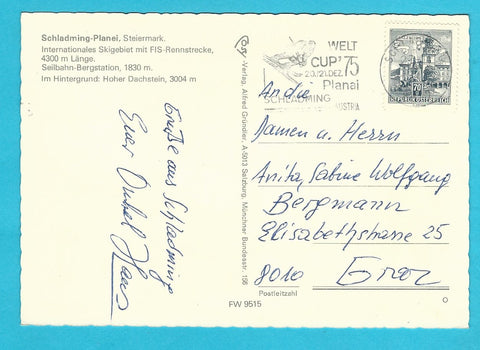 Schladming-Planei, Steiermark.
Internationales Skigebiet mit FIS-Rennstrecke,
4300 m Länge.
Seilbahn-Bergstation, 1830 m.
Im Hintergrund: Hoher Dachstein, 3004 m
Grüße aus Schladming
Euer Onkel Hans
-Verlag, Alfred Gründler, A-5013 Salzburg, Münchner Bundesstr. 156
WELT
CUP 75
20./21. DEZ.
Planai
SCHLADMING
AUSTRIA
70
REPUBLIK ÖSTERREICH
An die
Damen u. Herrn
Anita, Sabine Wolfgang
Bergmann
Elisabethstrasse 25
8010 Graz
Postleitzahl
FW 9515